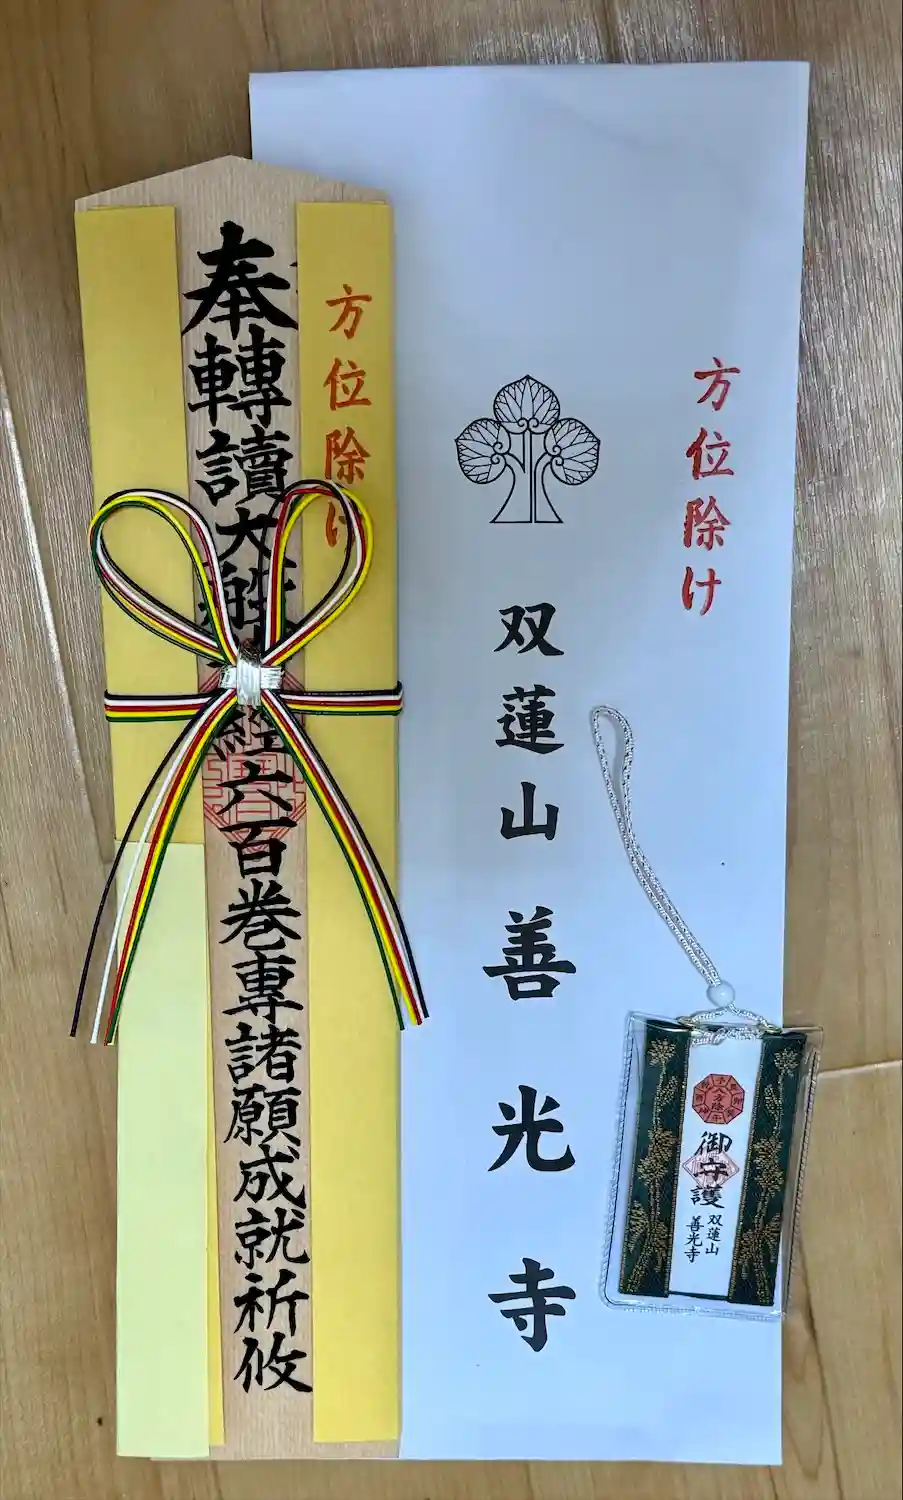 方位除け
奉轉讀大般經六百巻専諸願成就祈攸
方位除け
双蓮山善光寺
八方除
御守護
双蓮山
善光寺